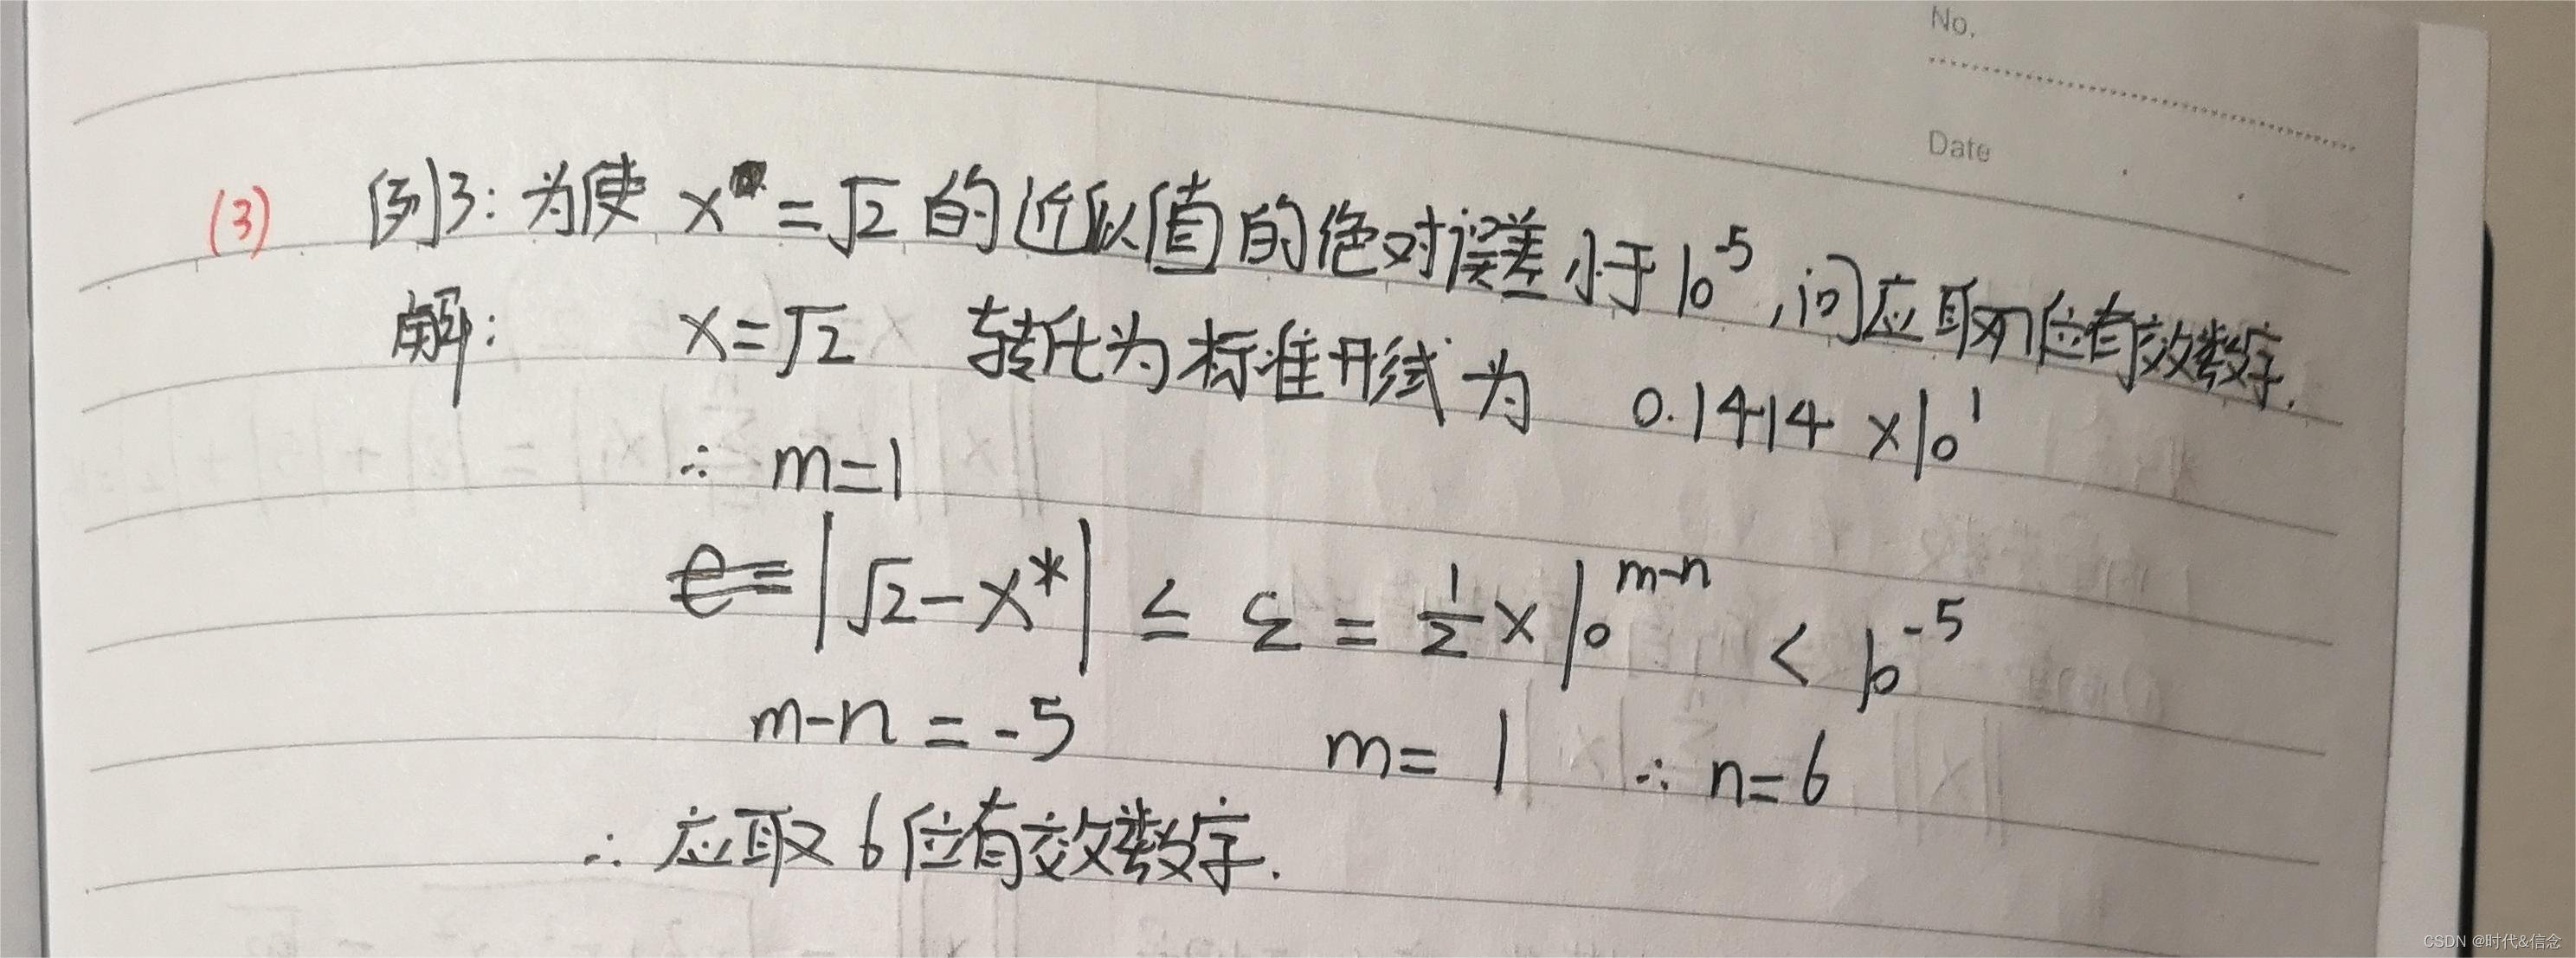 No.
Date
(3) 例3: 为使 x = √2 的近似值的绝对误差小于10⁻⁵, 问应取几位有效数字.
解: x = √2 转化为标准形式为 0.1414 × 10¹
∴ m = 1
|√2 - x*| ≤ ε = 1/2 × 10ᵐ⁻ⁿ < 10⁻⁵
m-n = -5 m = 1 ∴ n = 6
∴ 应取 6 位有效数字.
CSDN @时代&信念